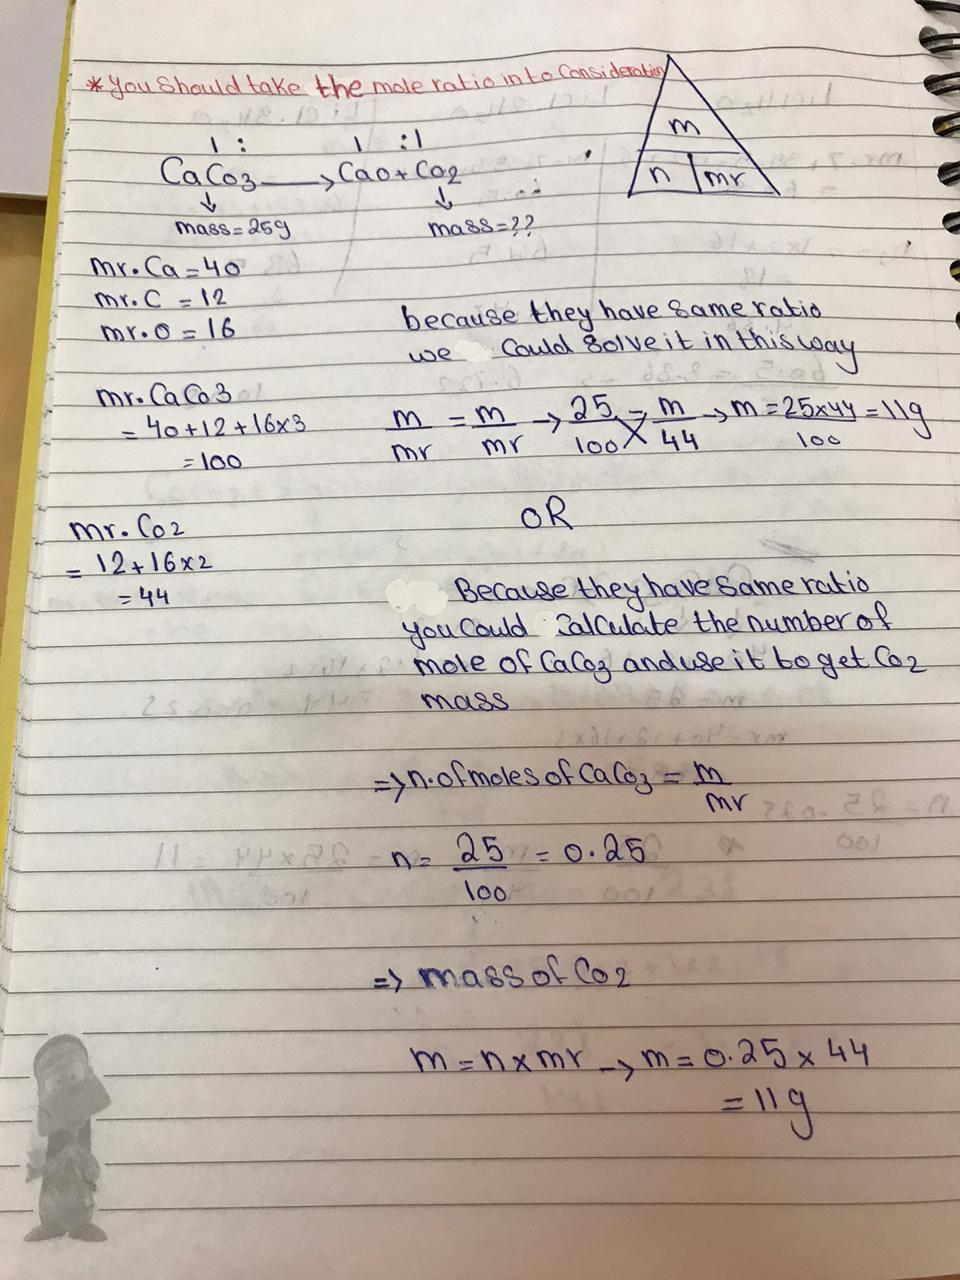 *You Should take the mole ratio into Consideration
m
n mr
1 : 1 :1
CaCo3 → CaO + Co2
↓ ↓
mass=25g mass=??
mr.Ca=40
mr.C =12
mr.O =16
because they have same ratio
we Could solve it in this way
mr.CaCo3
=40+12+16x3
=100
m/mr = m/mr → 25/100 = m/44 → m=25x44/100 =11g
OR
mr.Co2
=12+16x2
=44
Because they have same ratio
you Could Calculate the number of
mole of CaCo3 and use it to get Co2
mass
=> n.of moles of CaCo3 = m/mr
n= 25/100 =0.25
=> mass of Co2
m=nxmr → m=0.25x44
=11g